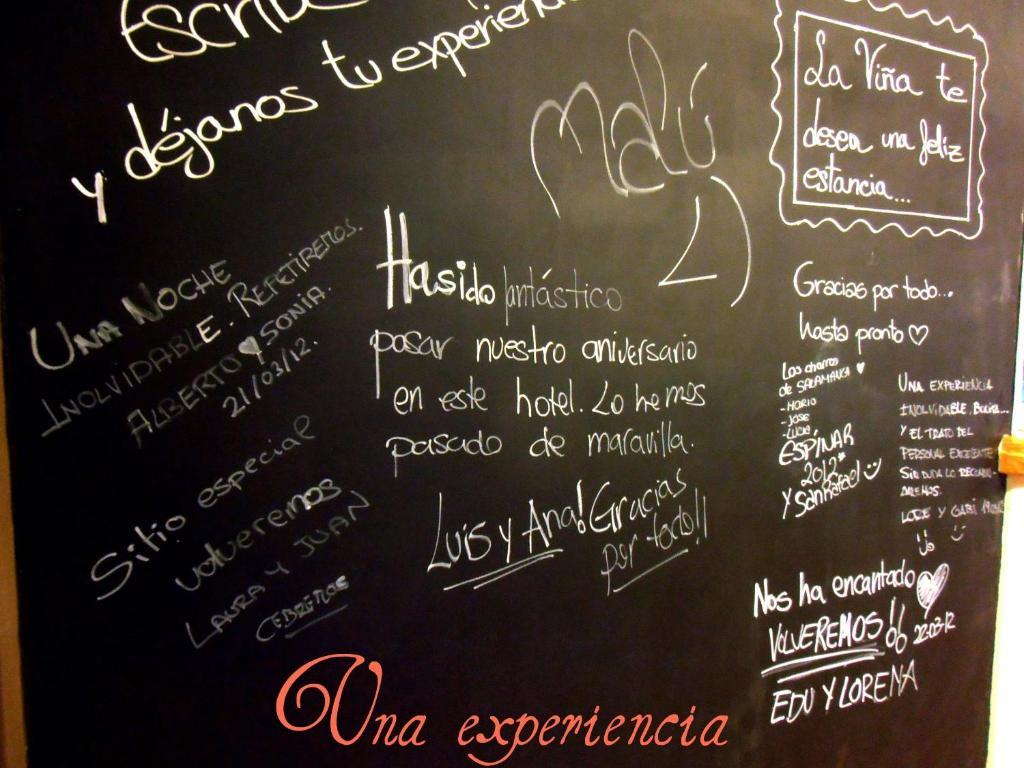 y déjanos tu experiencia
Malú
La Viña te
desea una feliz
estancia...
UNA NOCHE
INOLVIDABLE. REPETIREMOS.
ALBERTO Y SONIA.
21/03/12.
Sitio especial
volveremos
LAURA Y JUAN
Ha sido fantástico
pasar nuestro aniversario
en este hotel. Lo hemos
pasado de maravilla.
Luis y Ana! Gracias
por todo!!
Gracias por todo...
hasta pronto ♡
Los charros
de SALAMANCA ♥
- MARIO
- JOSE
- LUCIA
ESPINAR
2012*
Y San Rafael
UNA EXPERIENCIA
INOLVIDABLE.
Y EL TRATO DEL
PERSONAL EXCELENTE
SIN DUDA LO RECOMEN-
DAREMOS.
LORE Y GABI
Nos ha encantado
VOLVEREMOS!!
22-03-12
EDU Y LORENA
Una experiencia